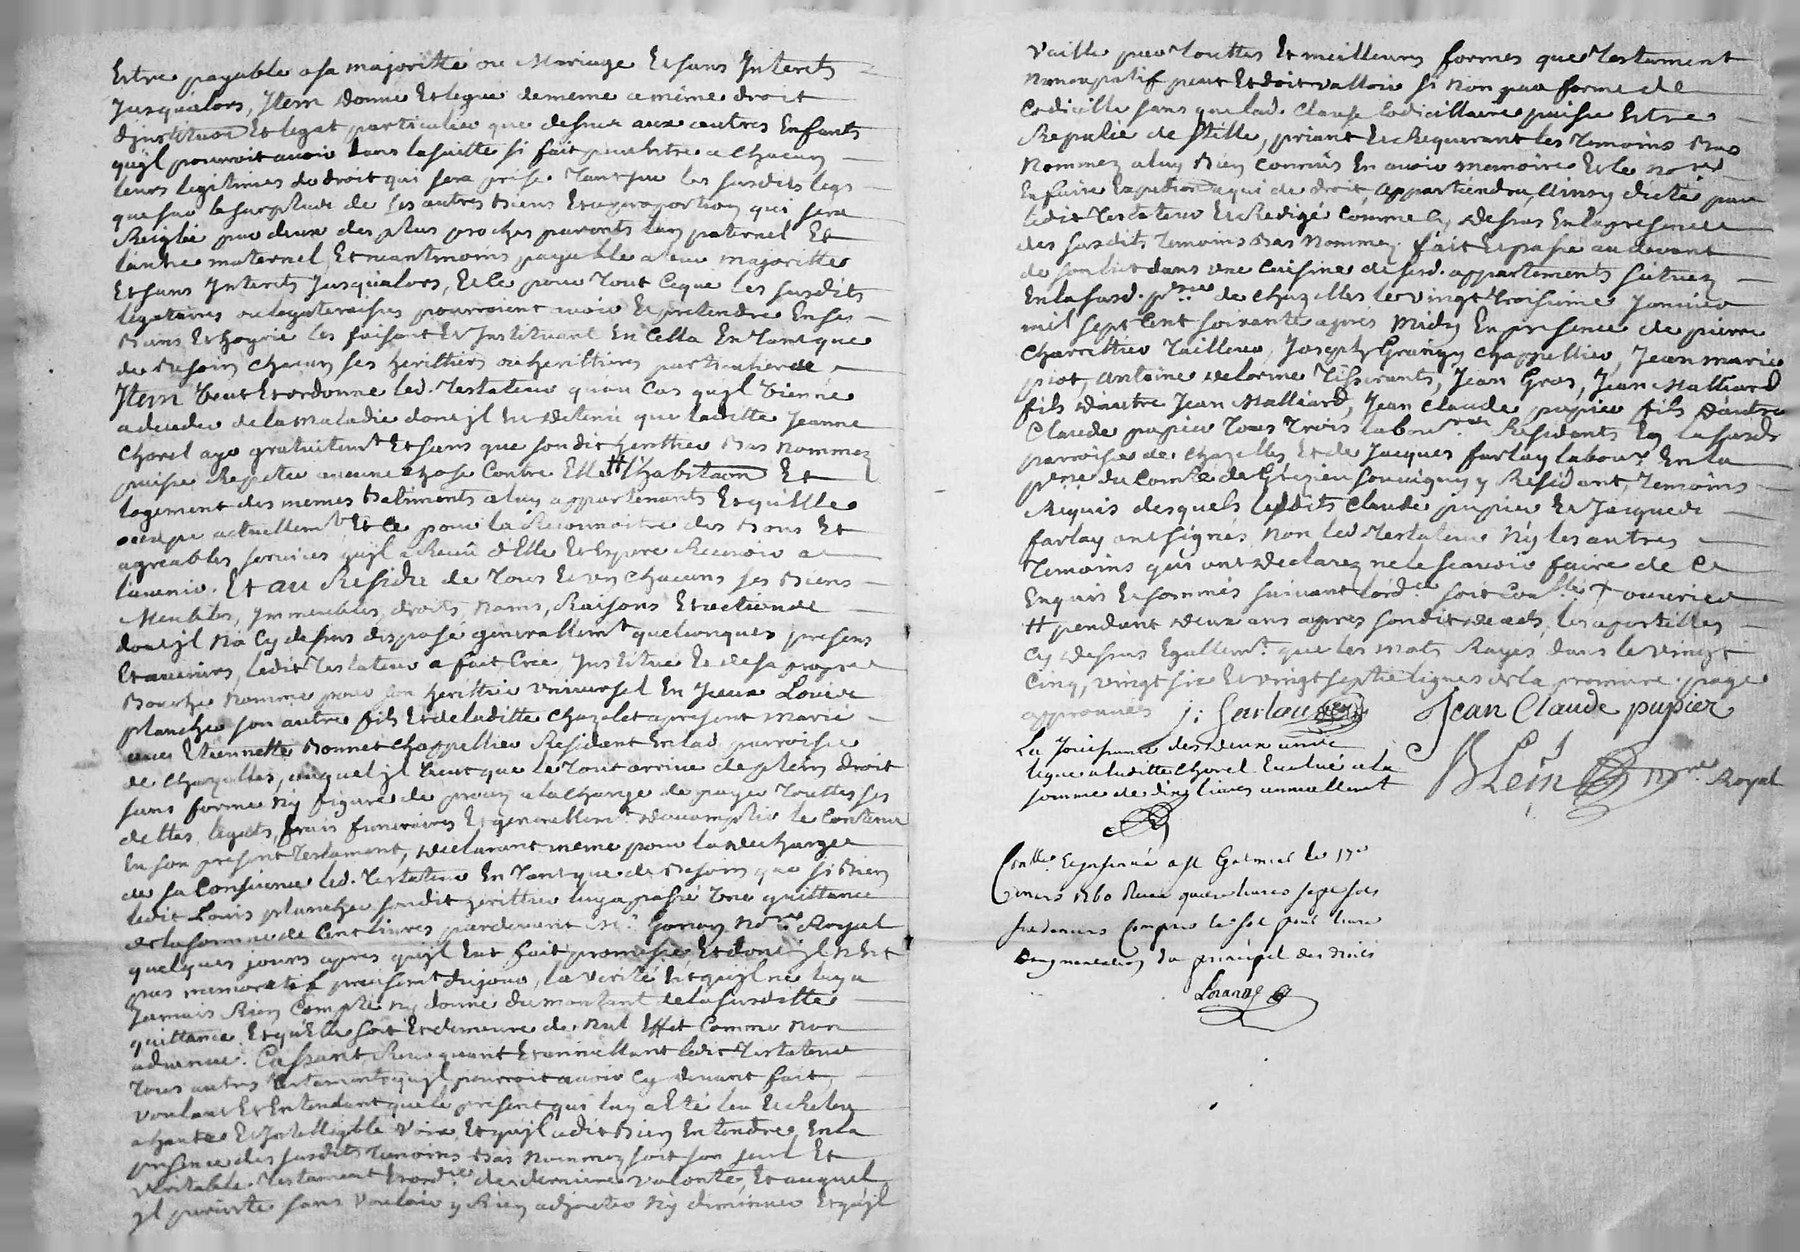 Estre payable a sa majoritté ou Mariage Et sans Interets
Jusqualors, Item donne Et legue de meme a même droit
d'institution Et legat particulier que dessus aux autres Enfants
quyl pourroit avoir dans la suitte si fait peut Estre a chacun
leurs legitimes de droit qui sera prise tant sur les susdits legs
que sur le surplus de ses autres biens Et a proportion qui sera
Reiglée par deux des plus proches parents lun paternel Et
lautre maternel, Et neantmoins payable a leur majoritté
Et sans Interets Jusqualors, Et le pour tout ce que les susdits
légataires ou legateresses pourroient avoir Et pretendre En ses
Biens Et hoyrie les faisant Et Instituant En cella En tant que
de Besoin chacun ses herittiers ou herittieres particulier de
Item veut Et ordonne led. testateur quau cas quyl vienne
a deceder de la maladie dont jl Est detenu que laditte Jeanne
Chorel aye gratuitemt Et sans que son dit heritier bas nommez
puisse Repeter aucune chose contre Elle # L'habitaon Et
logement des memes batiments a luy appartenants Et quElle
occupe actuellemt Et ce pour la Reconnoitre des bons Et
agreables services quyl a Receü d'Elle Et Espere Recevoir a
lavenir. Et au Residu de tous Et un chacuns ses Biens
Meubles, Immeubles, droits, noms, Raisons Et actions de
dont jl na cy dessus disposé generallemt quelconques presens
Et avenirs, ledit testateur a fait Créé, Institué Et de sa propre
Bouche nommé pour son herittier universel En Jceux Louis
planche son autre fils Et de laditte Chazelet a present marié
avec Etiennette Bonnet Chappellier Resident En lad. parroisse
de Chazelles, auquel jl veut que le tout arrive de plein droit
sans forme ny figure de proces a la charge de payer touttes ses
dettes, legats, frais funeraires Et generallemt daccomplir le contenu
En son present testament, declarant meme pour la decharge
de sa Consience led. testateur En tant que de Besoin que si Bien
ledit Louis planche son dit herittier luy a passé une quittance
de la somme de Cent livres pardevant Me. Nore Royal
quelques jours apres quyl Eut fait promesse, Et dont jl n'Est
pas memoratif presisemt du jour, la verité Est quyl ne luy a
Jamais Rien compté ny donné du montant de la susditte
quittance, Et quElle soit Et demeure de nul Effet comme non
advenue. Cassant Revoquant Et annullant ledit testateur
tous autres testaments quyl pourroit avoir cy devant fait
voulant Et Entendant que le present qui luy a Eté leu Et Releu
a haute Et Intelligible voix, Et quyl a dit Bien Entendre, En la
presence des susdits temoins bas nommez soit son seul Et
veritable testament Et ordre de derniere volonté, Et auquel
jl persiste sans vouloir y Rien adjouter ny diminuer Et quyl
vaille par touttes Et meilleures formes que testament
noncupatif peut Et doit valloir si non par forme de
Codicille sans que lad. Clause Codicillaire puisse Estre
Reputée de stille, priant Et Requerant les temoins bas
nommez a luy Bien connus En avoir memoire Et le nore
En faire Expedition a qui de droit, appartiendra, ainsy dicté par
ledit testateur Et Redigé comme cy dessus En la presence
des susdits temoins bas nommez. fait Et passé au devant
de son lit dans une cuisine de sesd. appartements scituez
En la susd. psse de Chazelles le vingt troisieme Janvier
mil sept cent soixante apres Midy En presence de pierre
Charrettier tailleur, Joseph Grangy Chappellier, Jean marie
piot, antoine delorme tisserants, Jean Gros, Jean Malliard
fils d'autre Jean Malliard, Jean Claude pupier fils d'autre
Claude pupier tous trois labours Residents En la susd.
parroisse de Chazelles Et de Jacques farlay labour En la
psse du Comté de Grézieu Souvigny y Résidant, temoins
Requis desquels lesdits Claude pupier Et Jacques
farlay ont signés non led. testateur ny les autres
temoins qui ont declarez ne le scavoir faire de ce
Enquis Et sommés suivant l'ordce soit conllé + ouvrier
# pendant deux ans apres son dit deces, les apostilles
cy dessus Egallemt. que les mots Rayés dans le vingt
cinq, vingt six Et vingt septie lignes de la premiere page
approuvés j: farlay Jean Claude pupier
La Jouissance des deux années
leguée a laditte Chorel Evalué a la
somme de dix livres annuellement
Blein nore Royal
Conllé Et insinué a St Galmier le
1760 Reçu quatre livres sept sols
six deniers compris le sol pour livre
daugmentation du principal des droits